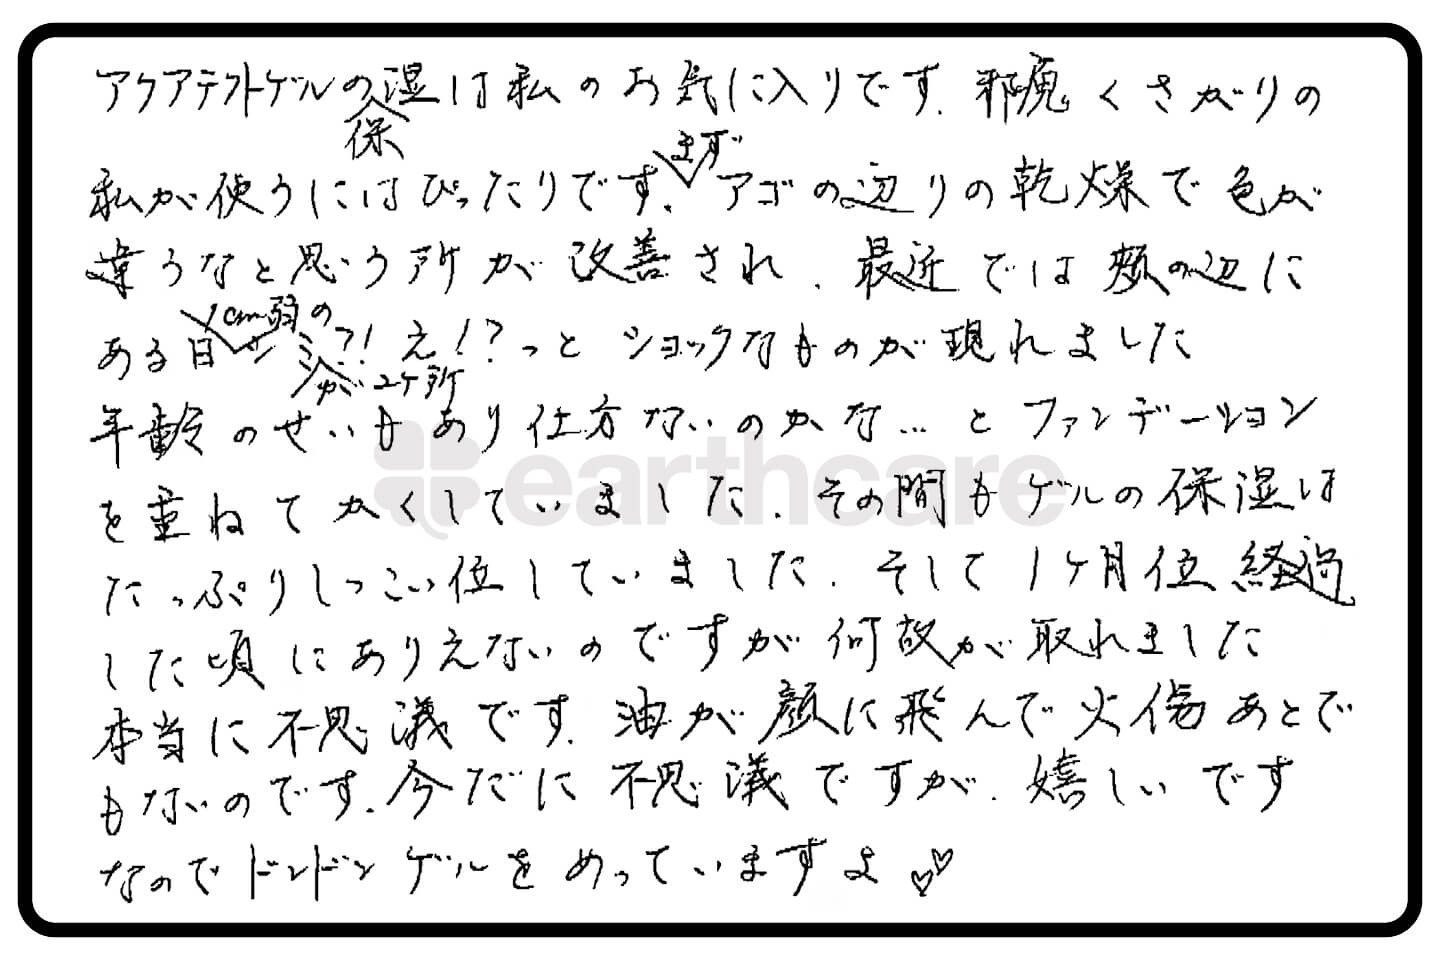 アクアテクトゲルの保湿は私のお気に入りです。邪魔くさがりの
私が使うにはぴったりです。まずアゴの辺りの乾燥で色が
違うなと思う所が改善され、最近では頬の辺に
ある日1cm弱のシミが2ヶ所?!え!?っとショックなものが現れました
年齢のせいもあり仕方ないのかな…とファンデーション
を重ねてかくしていました。その間もゲルの保湿は
たっぷりしつこい位していました。そして1ヶ月位経過
した頃にありえないのですが何故か取れました
本当に不思議です。油が顔に飛んで火傷あとで
もないのです。今だに不思議ですが、嬉しいです
なのでドンドンゲルをめっていますよ♡♡
earthcare